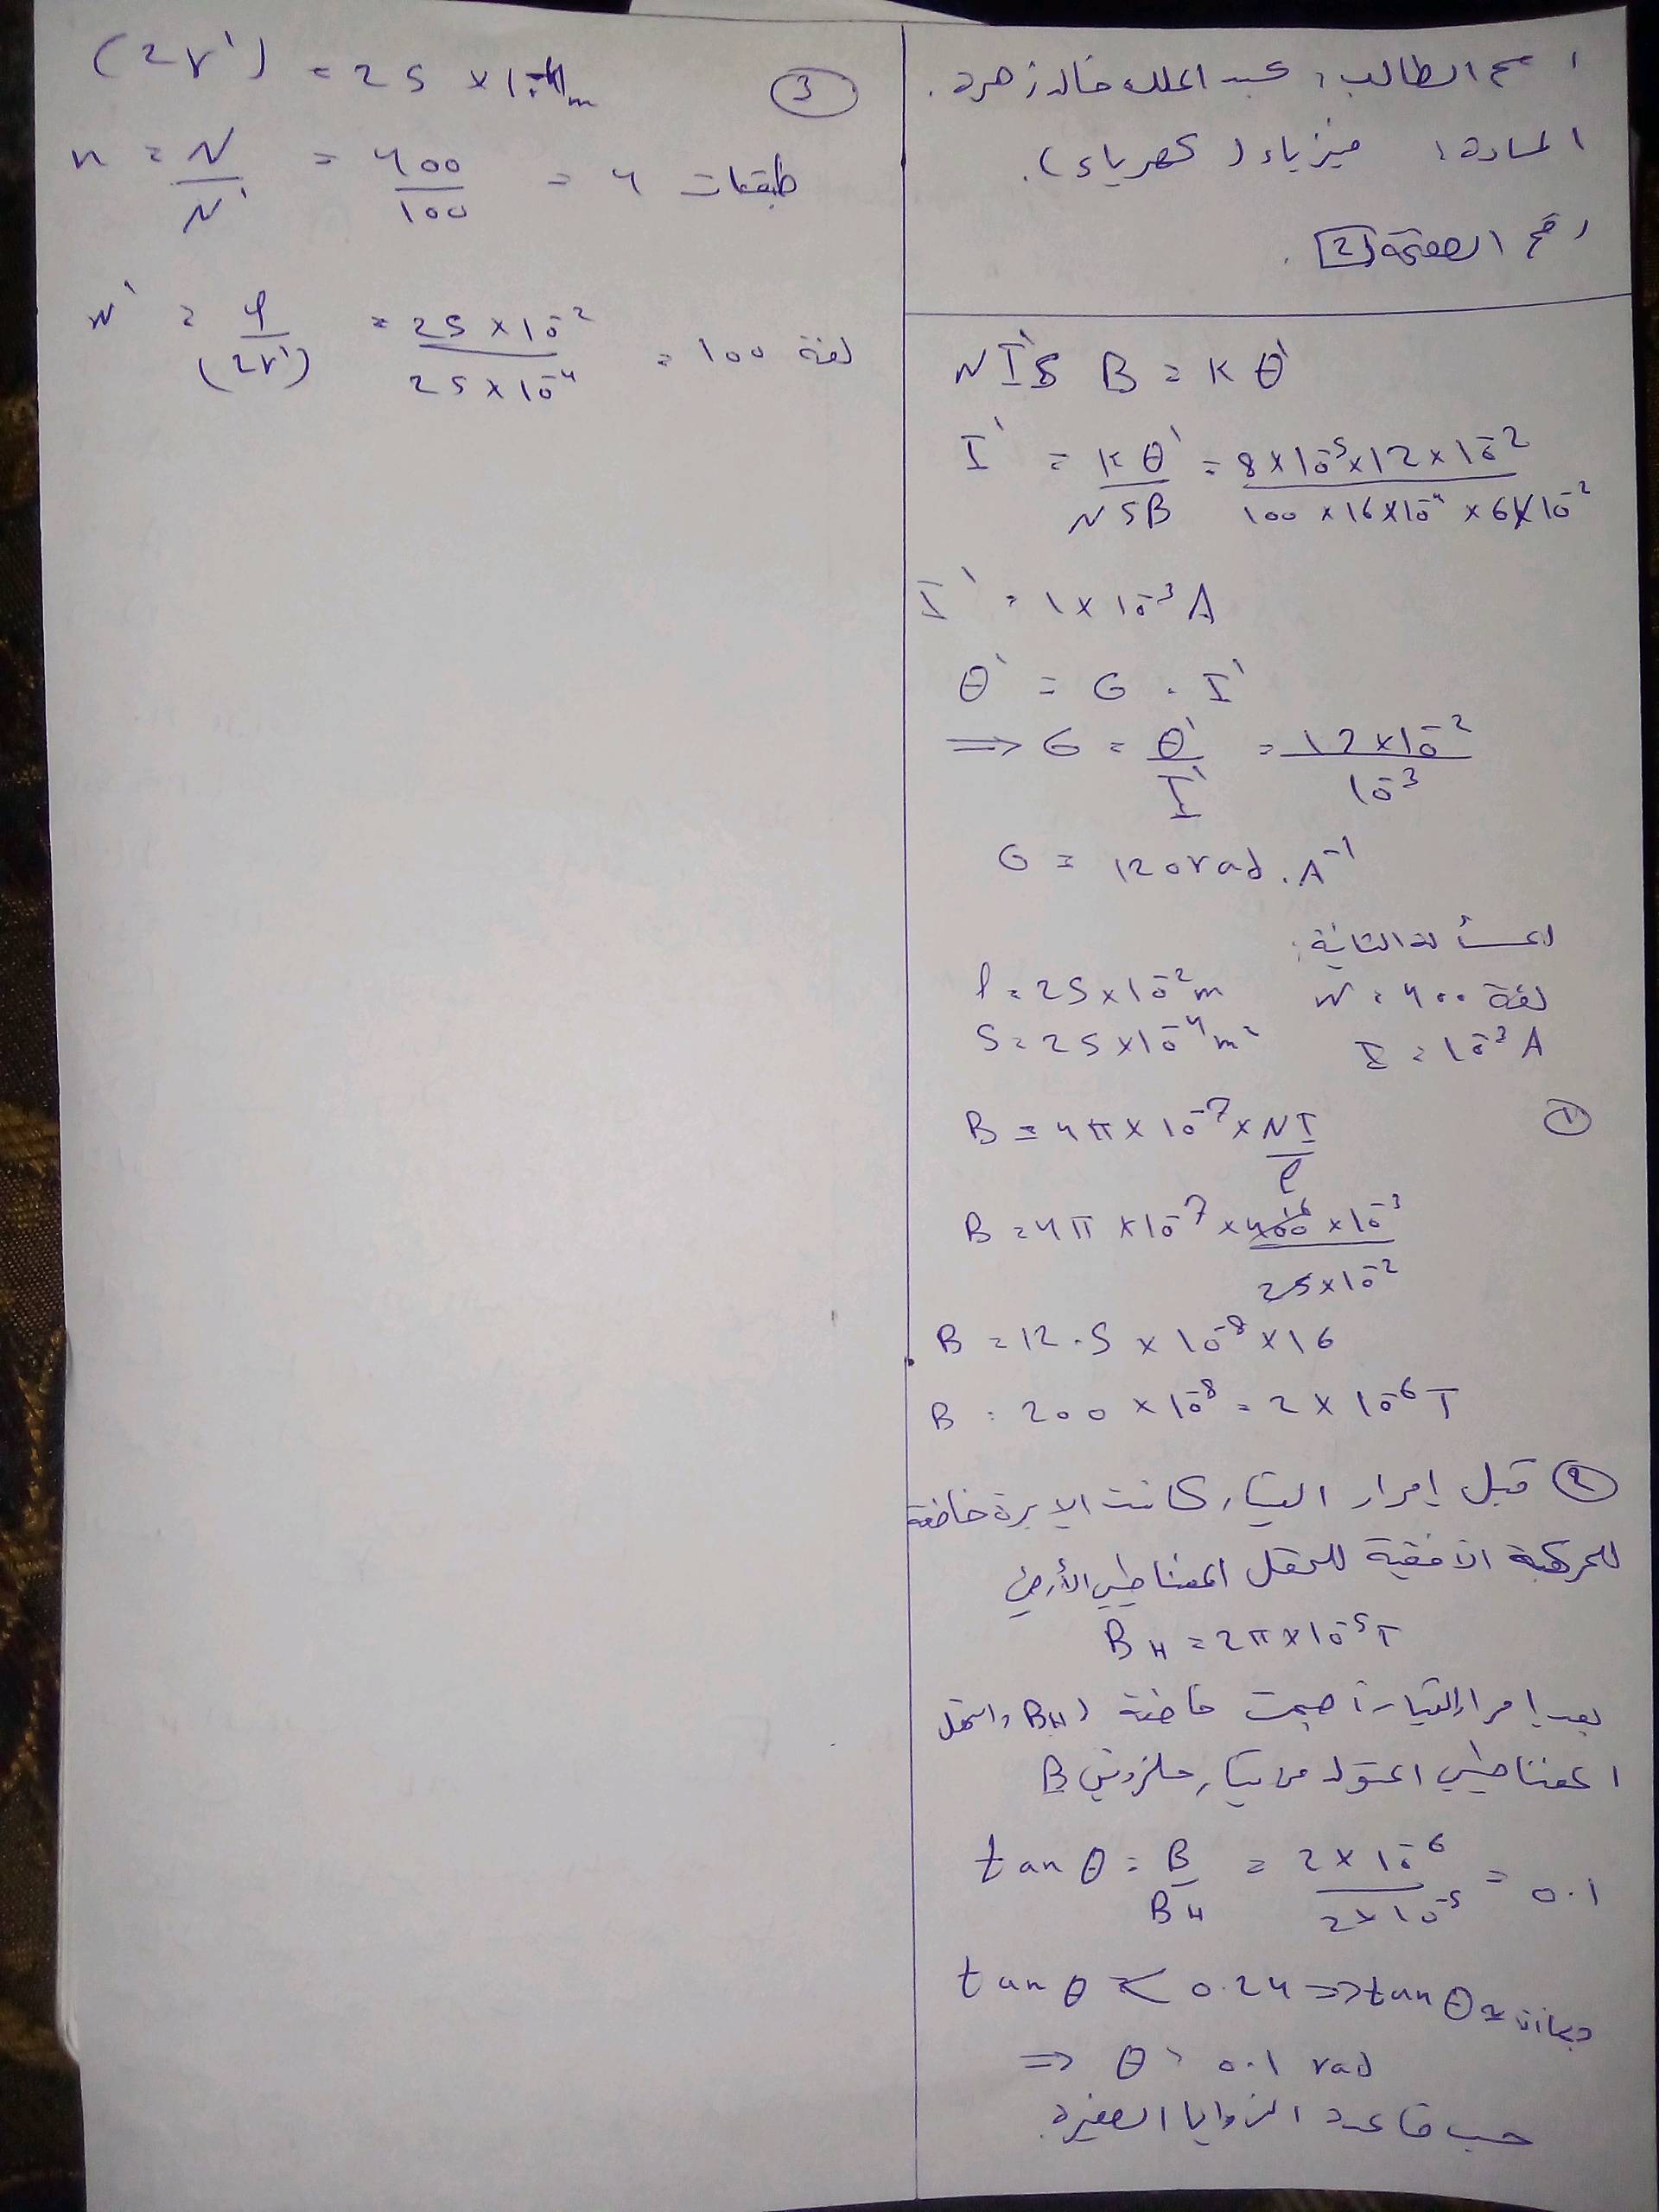 اسم الطالب: عبد الملك خالد زهرة.
المادة: فيزياء (كهرباء).
رقم الصفحة (2).
N I' S B = K θ'
I' = Kθ' / NSB = 8×10^-5×12×10^-2 / 100×16×10^-4×6×10^-2
I' = 1×10^-3 A
θ' = G . I'
⇒ G = θ' / I' = 12×10^-2 / 10^-3
G = 120 rad . A^-1
المسألة الثانية:
l = 25×10^-2 m   N = 400 لفة
S = 25×10^-4 m²   I = 10^-3 A
①
B = 4π×10^-7 × NI / l
B = 4π×10^-7 × 400×10^-3 / 25×10^-2
B = 12.5×10^-8×16
B = 200×10^-8 = 2×10^-6 T
② قبل إمرار التيار كانت الإبرة خاضعة
للمركبة الافقية للحقل المغناطيسي الأرضي
B_H = 2π×10^-5 T
بعد إمرار التيار أصبحت خاضعة لـ B_H والحقل
المغناطيسي المتولد من تيار حلزوني B
tan θ = B / B_H = 2×10^-6 / 2×10^-5 = 0.1
tan θ < 0.24 ⇒ tan θ ≈
⇒ θ ≈ 0.1 rad
حسب قاعدة الزوايا الصغيرة.
③
(2r') = 25×10^-4 m
n = N / N' = 400 / 100 = 4 طبقات
N' = l / (2r') = 25×10^-2 / 25×10^-4 = 100 لفة